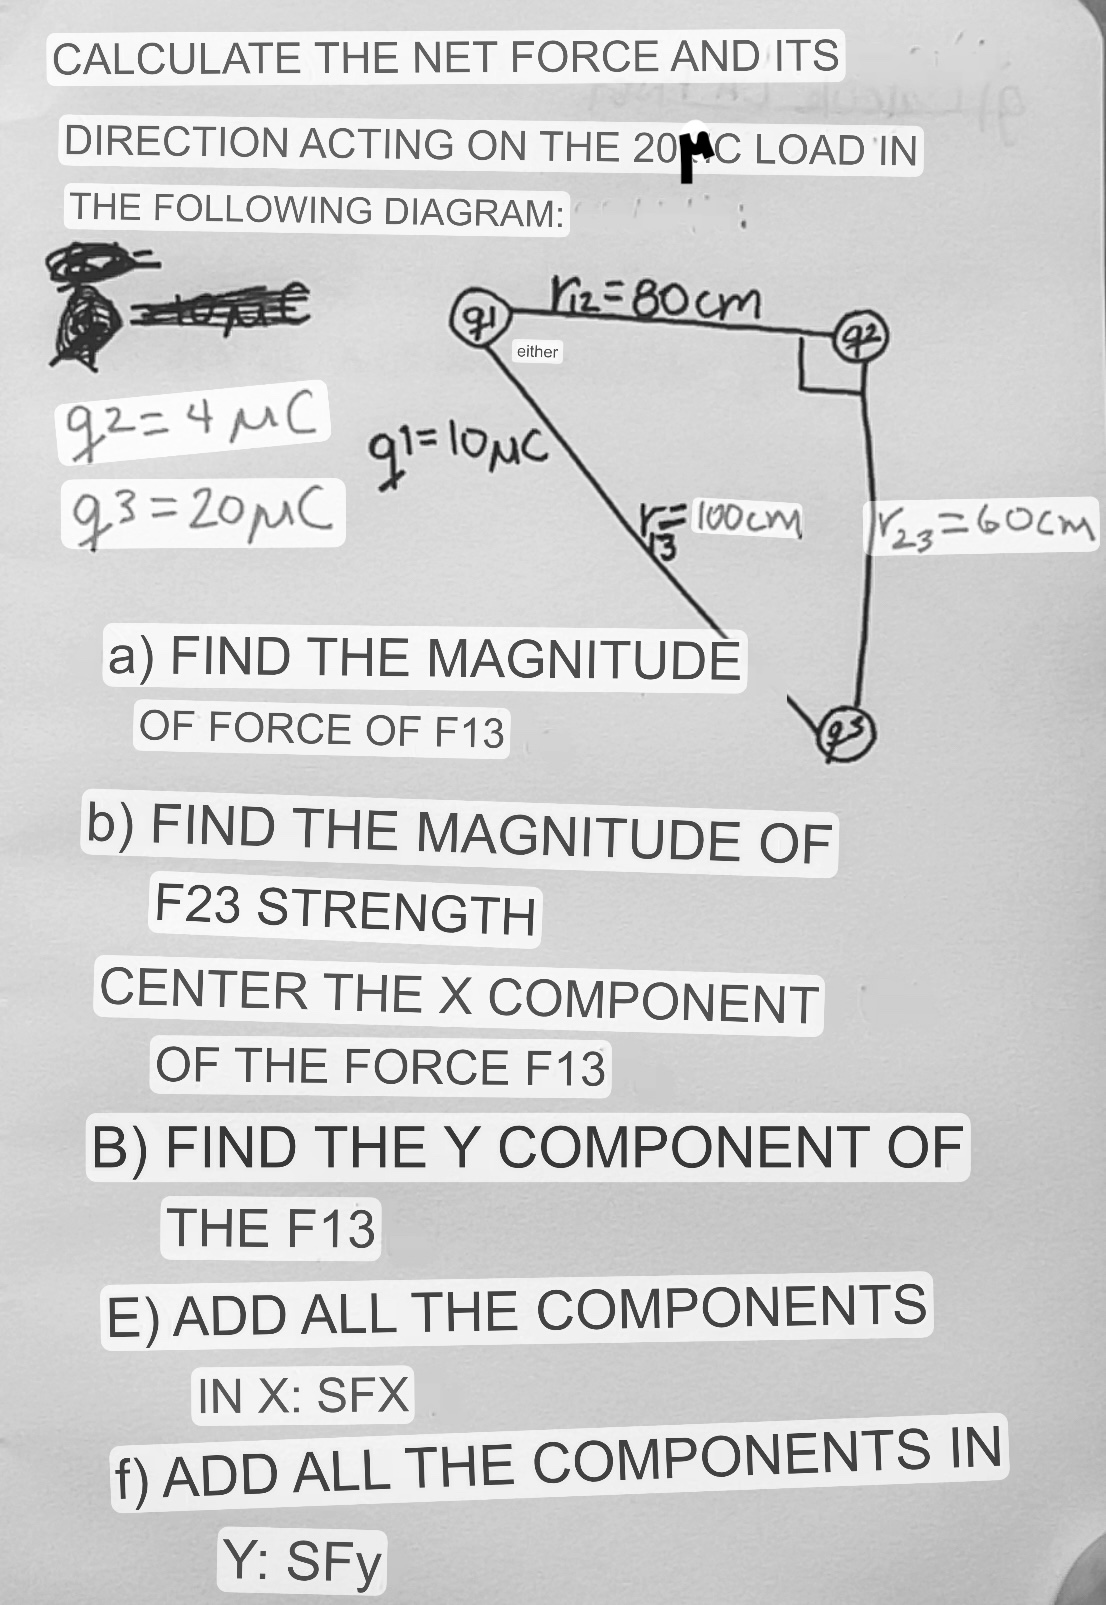 CALCULATE THE NET FORCE AND ITS
DIRECTION ACTING ON THE 20μC LOAD IN
THE FOLLOWING DIAGRAM:
r12=80cm
q1
q2
either
q2=4μC
q1=10μC
q3=20μC
r13=100cm
r23=60cm
a) FIND THE MAGNITUDE
OF FORCE OF F13
q3
b) FIND THE MAGNITUDE OF
F23 STRENGTH
CENTER THE X COMPONENT
OF THE FORCE F13
B) FIND THE Y COMPONENT OF
THE F13
E) ADD ALL THE COMPONENTS
IN X: SFX
f) ADD ALL THE COMPONENTS IN
Y: SFy